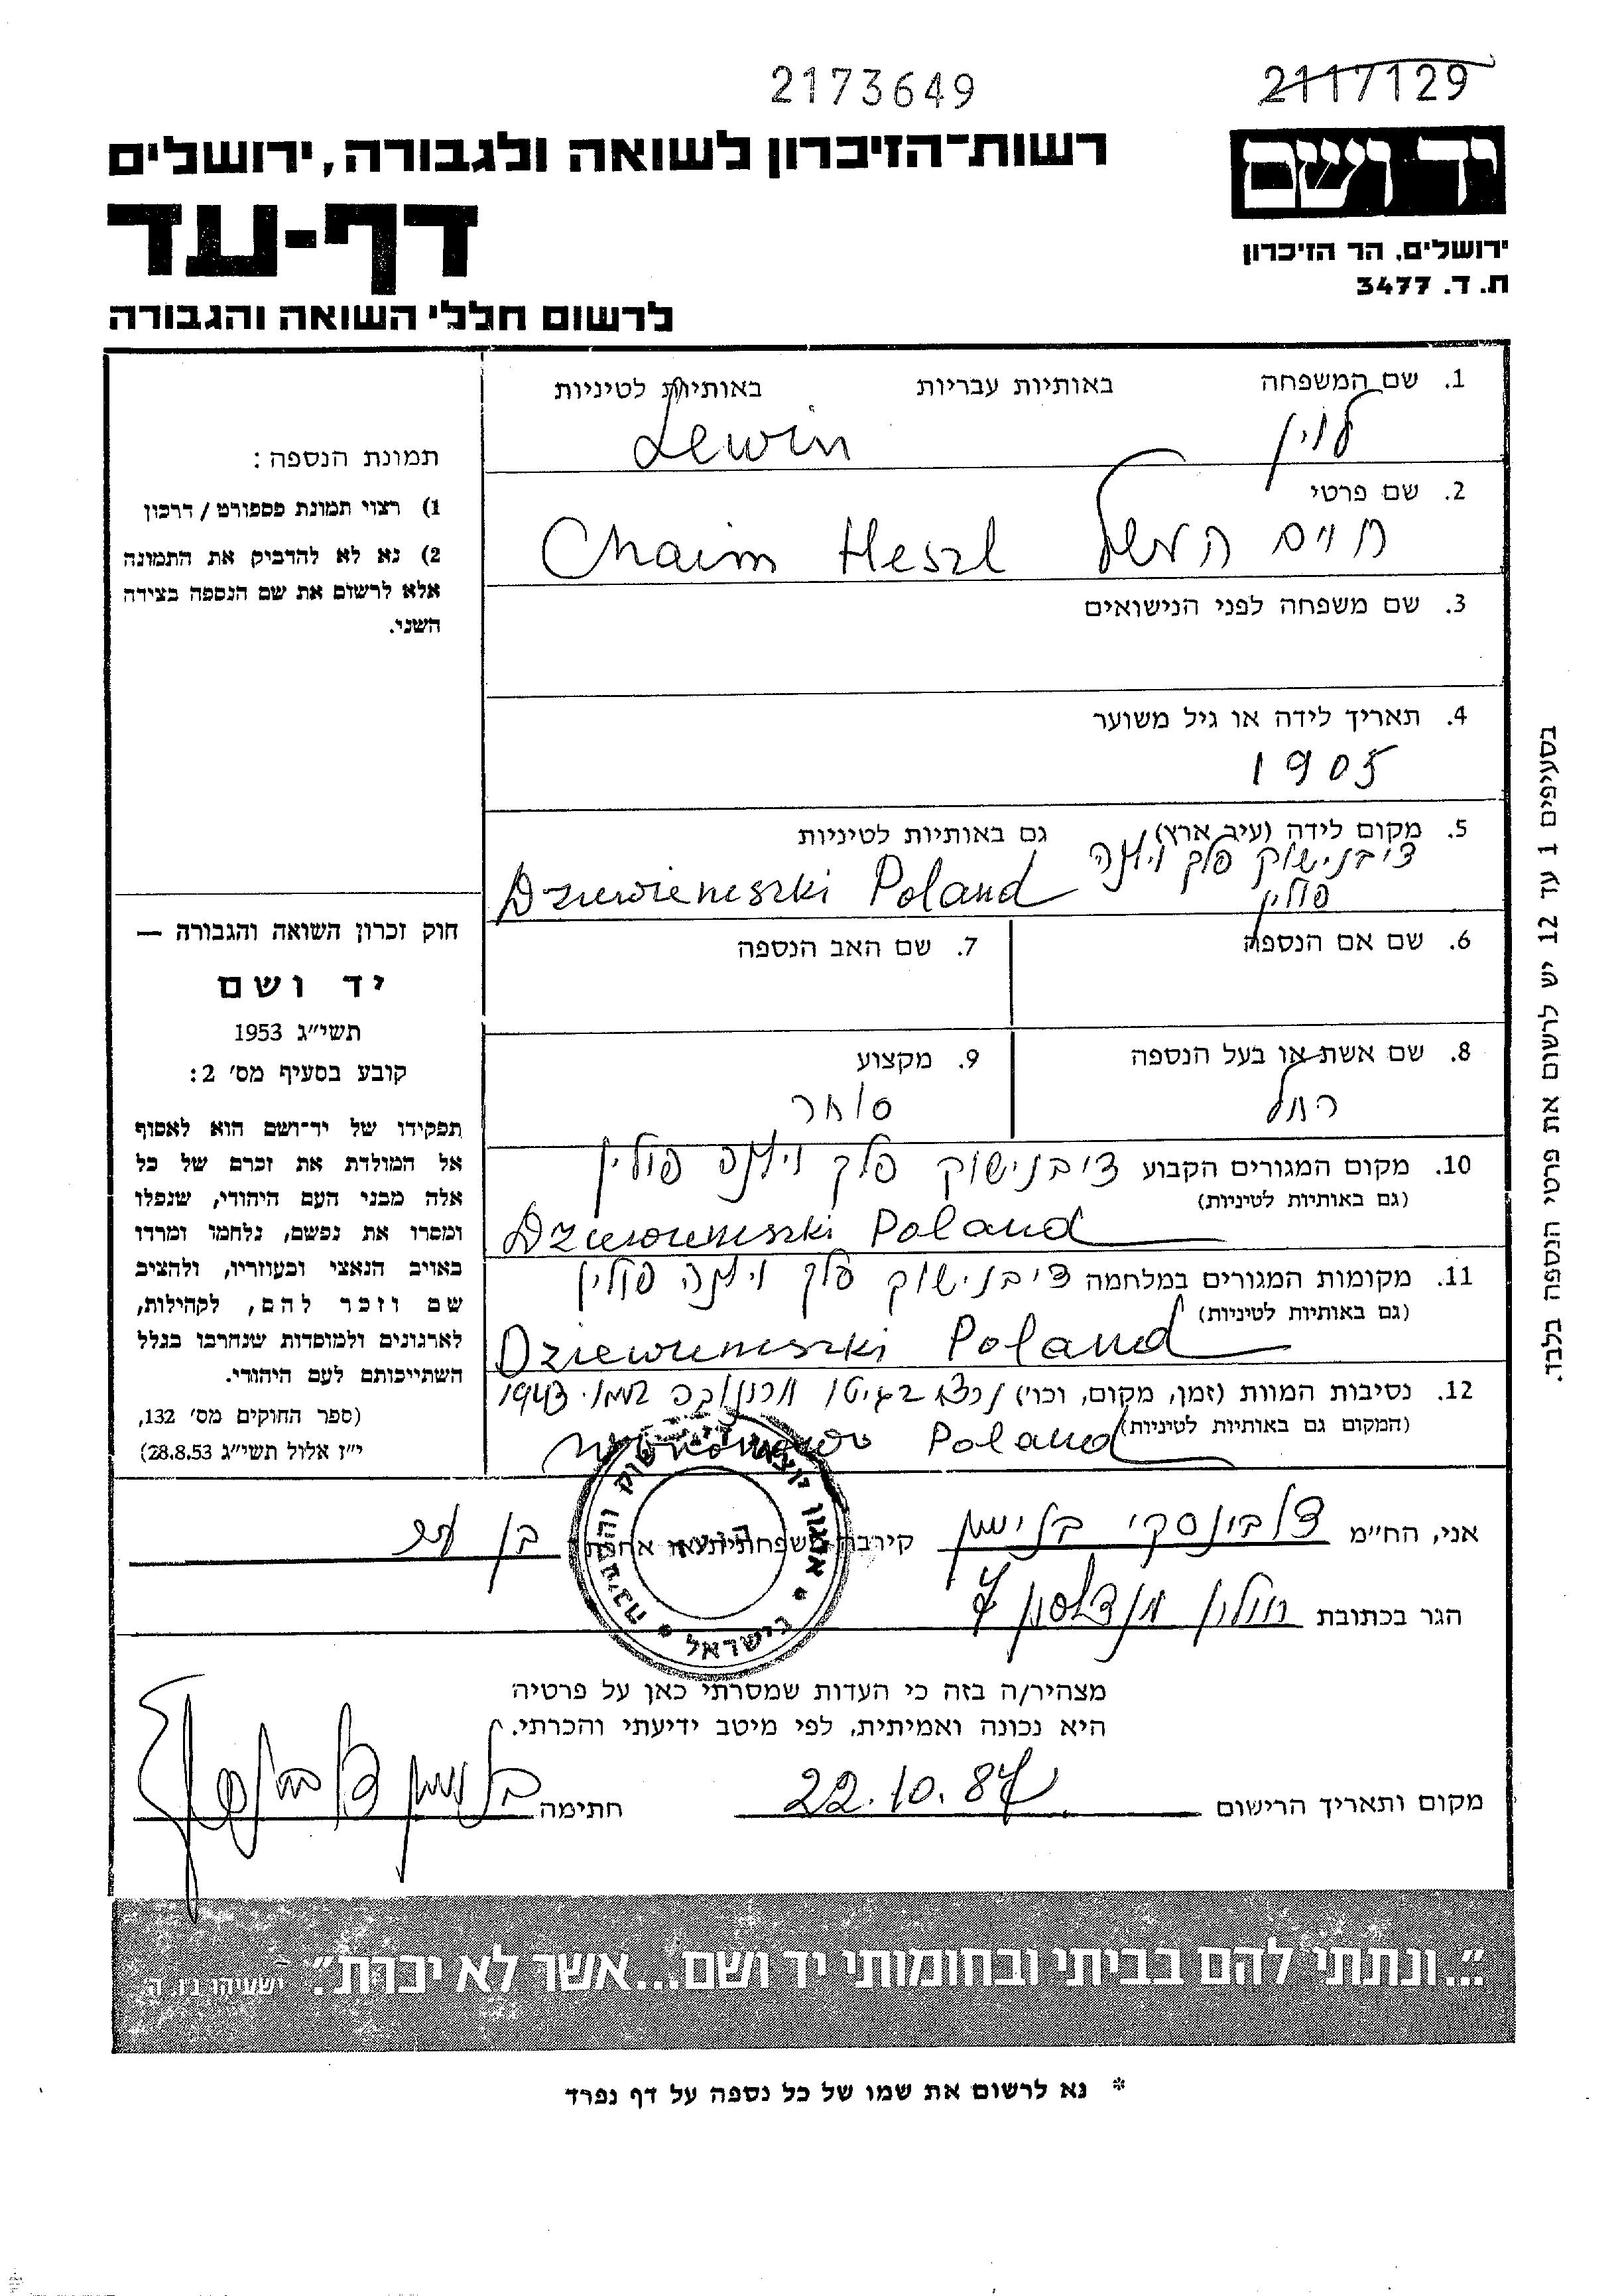 2173649
2117129
יד ושם
ירושלים, הר הזיכרון
ת. ד. 3477
רשות-הזיכרון לשואה ולגבורה, ירושלים
דף-עד
לרשום חללי השואה והגבורה
1. שם המשפחה באותיות עבריות באותיות לטיניות
לוין Lewin
2. שם פרטי
חיים העשל Chaim Heszl
3. שם משפחה לפני הנישואים
4. תאריך לידה או גיל משוער
1905
5. מקום לידה (עיר, ארץ) גם באותיות לטיניות
ציבנישוק פלך וילנה
פולין
Dziewieniszki Poland
6. שם אם הנספה
7. שם האב הנספה
8. שם אשת או בעל הנספה
רחל
9. מקצוע
סוחר
10. מקום המגורים הקבוע ציבנישוק פלך וילנה פולין
(גם באותיות לטיניות)
Dziewieniszki Poland
11. מקומות המגורים במלחמה ציבנישוק פלך וילנה פולין
(גם באותיות לטיניות)
Dziewieniszki Poland
12. נסיבות המוות (זמן, מקום, וכו׳) נרצח בגיטו 1943
(המקום גם באותיות לטיניות)
Poland
תמונת הנספה:
1) רצוי תמונת פספורט / דרכון
2) נא לא להדביק את התמונה
אלא לרשום את שם הנספה בצידה
השני.
חוק זכרון השואה והגבורה —
יד ושם
תשי״ג 1953
קובע בסעיף מס׳ 2:
תפקידו של יד-ושם הוא לאסוף
אל המולדת את זכרם של כל
אלה מבני העם היהודי, שנפלו
ומסרו את נפשם, נלחמו ומרדו
באויב הנאצי ובעוזריו, ולהציב
שם וזכר להם, לקהילות,
לארגונים ולמוסדות שנחרבו בגלל
השתייכותם לעם היהודי.
(ספר החוקים מס׳ 132,
י״ז אלול תשי״ג 28.8.53)
בסעיפים 1 עד 12 יש לרשום את פרטי הנספה בלבד.
אני, הח״מ קירבה משפחתית או אחרת בן
הגר בכתובת חולון מנדלסון 7
ארגון יוצאי והסביבה בישראל
מצהיר/ה בזה כי העדות שמסרתי כאן על פרטיה
היא נכונה ואמיתית, לפי מיטב ידיעתי והכרתי.
מקום ותאריך הרישום 22.10.84 חתימה
״...ונתתי להם בביתי ובחומותי יד ושם...אשר לא יכרת״. ישעיהו נ״ו, ה׳
* נא לרשום את שמו של כל נספה על דף נפרד